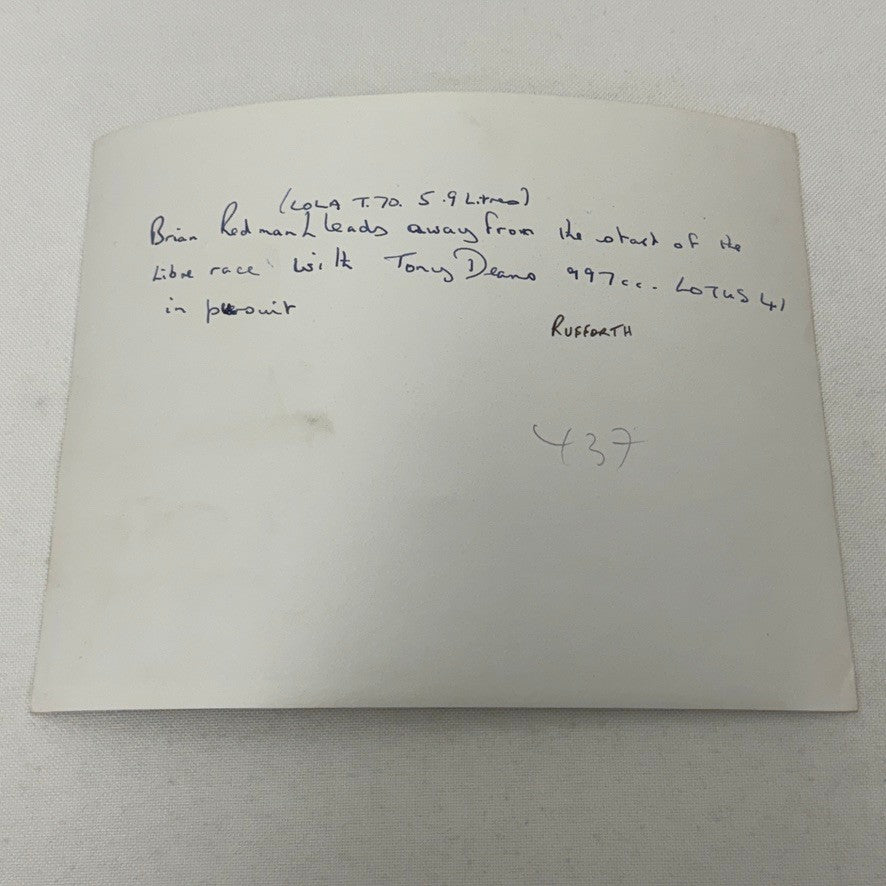 (LOLA T.70. 5.9 Litres)
Brian Redman leads away from the start of the
Libre race with Tony Deans 997cc. LOTUS 41
in pursuit
RUFFORTH
437